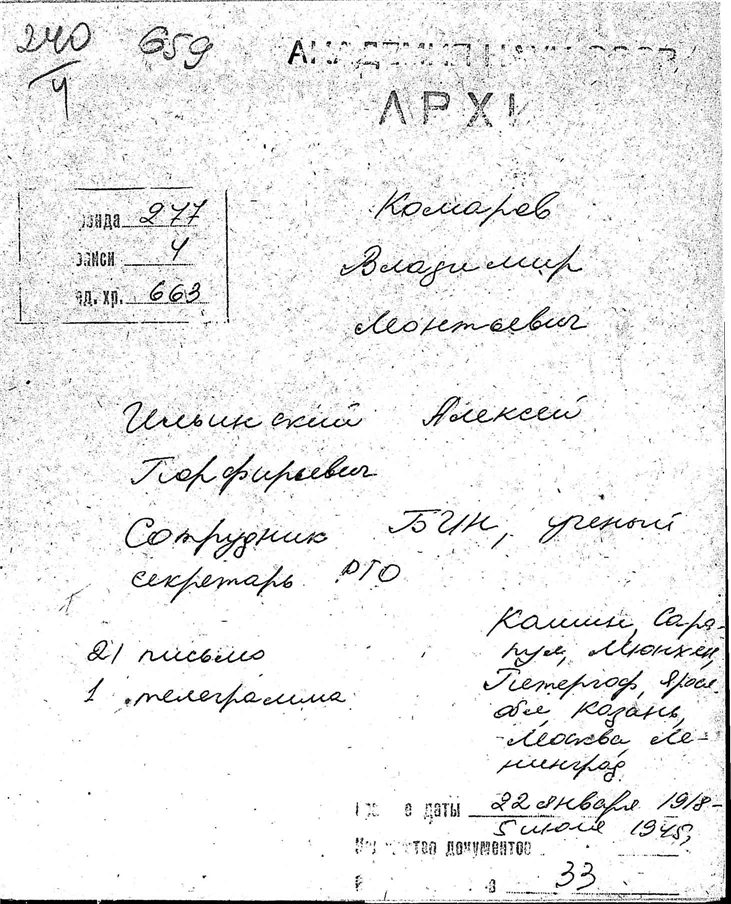 240 659
4
АКАДЕМИЯ НАУК СССР
АРХИ
277
4
ед. хр. 663
Комаров
Владимир
Леонтьевич
Ильинский Алексей
Порфирьевич
Сотрудник БИН, ученый
секретарь РГО
21 письмо
1 телеграмма
Калинин, Сара-
пул, Мюнхен,
Петергоф, Яросл.
обл. Казань,
Москва, Ле-
нинград
е даты 22 января 1918-
5 июля 1945,
документов
33